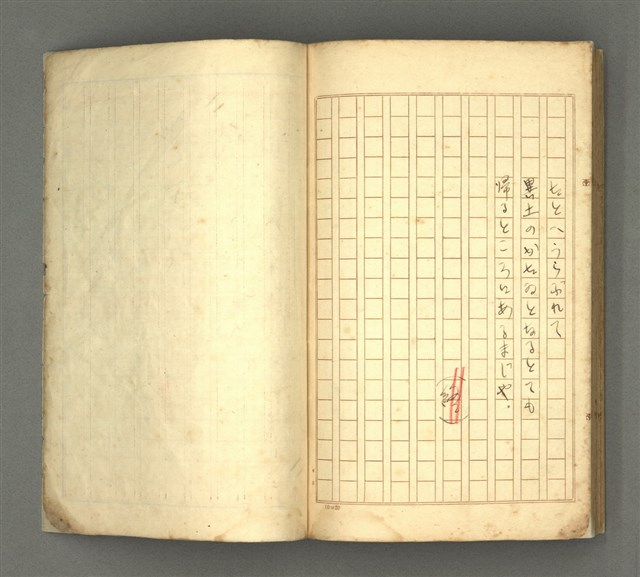 たとへうらぶれて
異土のかたゐとなるとても
帰るところにあるまじや。